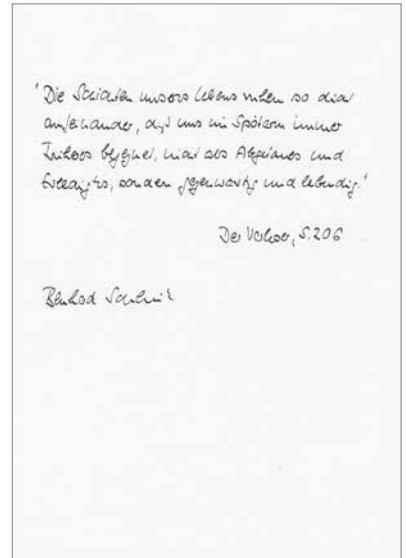 'Die Schichten unseres Lebens ruhen so dicht
aufeinander, daß uns im Späteren immer
Früheres begegnet, nicht als Abgetanes und
Erledigtes, sondern gegenwärtig und lebendig.'
Der Vorleser, S. 206
Bernhard Schlink